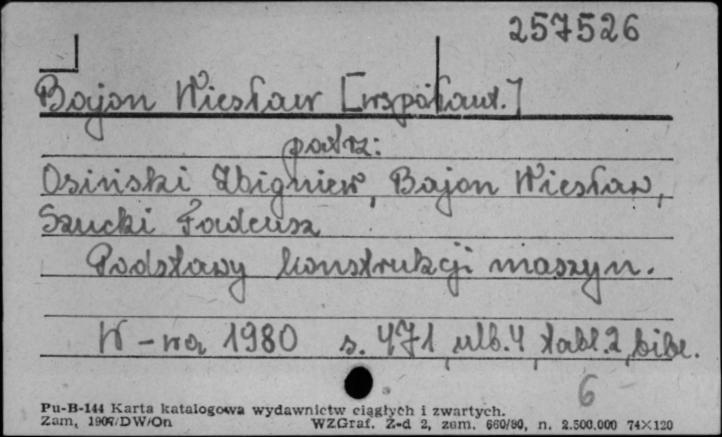 257526
Bajon Wiesław [współaut.]
patrz:
Osiński Zbigniew, Bajon Wiesław,
Szucki Tadeusz
Podstawy konstrukcji maszyn.
W-wa 1980 s. 471, nlb. 4, tabl. 2, bibl.
6
Pu-B-144 Karta katalogowa wydawnictw ciągłych i zwartych.
Zam. 1907/DW/On WZGraf. Z-d 2, zam. 660/80, n. 2.500.000 74×120